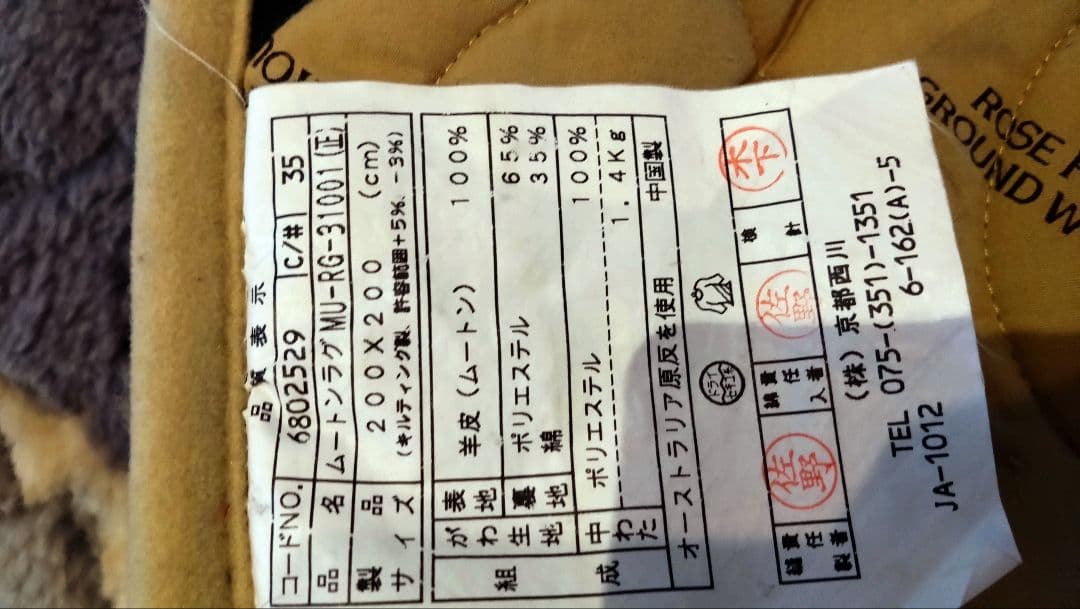 品質表示
コードNO. 6802529 C/# 35
品名 ムートンラグMU-RG-31001(正)
製品サイズ 200X200 (cm)
(キルティング製、許容範囲+5%、-3%)
組成
がわ生地 表地 羊皮(ムートン) 100%
裏地 ポリエステル 65%
綿 35%
中わた ポリエステル 100%
1.4Kg
オーストラリア原反を使用 中国製
ドライ
縫製責任者 佐野 綿入責任者 佐野 検針 木下
(株)京都西川
TEL 075-(351)-1351
6-162(A)-5
JA-1012
ROSE
GROUND W